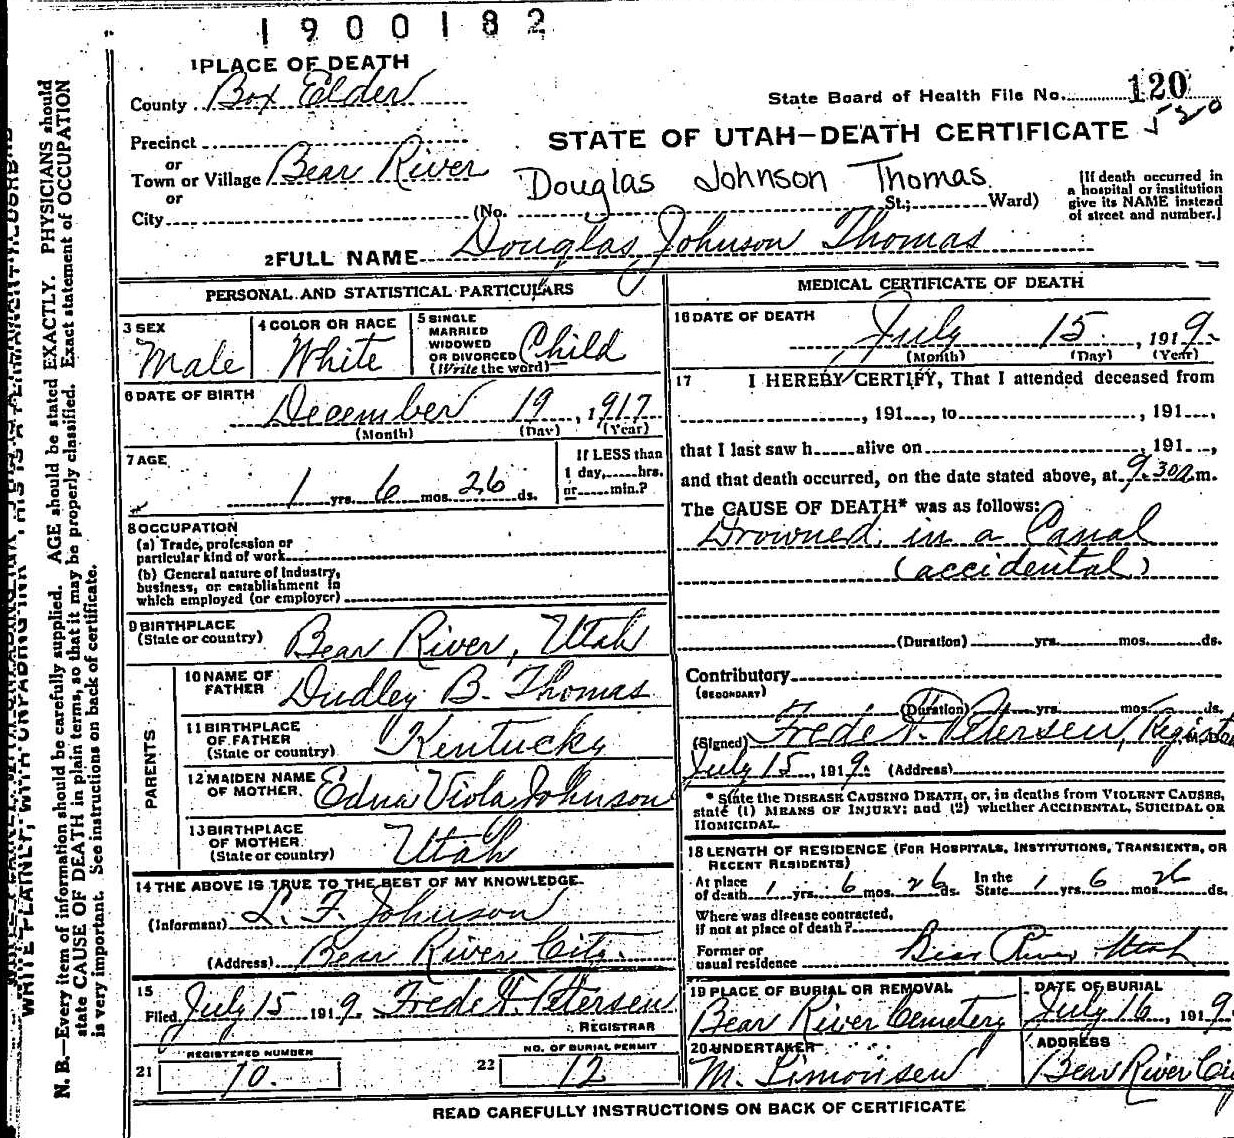 1900182
1 PLACE OF DEATH
County Box Elder
State Board of Health File No. 120
520
Precinct
or
STATE OF UTAH—DEATH CERTIFICATE
Town or Village Bear River
or
Douglas Johnson Thomas
City (No. St.; Ward)
[If death occurred in
a hospital or institution
give its NAME instead
of street and number.]
2 FULL NAME Douglas Johnson Thomas
PERSONAL AND STATISTICAL PARTICULARS
3 SEX
Male
4 COLOR OR RACE
White
5 SINGLE
MARRIED
WIDOWED
OR DIVORCED
(Write the word)
Child
6 DATE OF BIRTH
December 19, 1917
(Month) (Day) (Year)
7 AGE
1 yrs. 6 mos. 26 ds.
If LESS than
1 day, hrs.
or min.?
8 OCCUPATION
(a) Trade, profession or
particular kind of work
(b) General nature of Industry,
business, or establishment in
which employed (or employer)
9 BIRTHPLACE
(State or country) Bear River, Utah
PARENTS
10 NAME OF
FATHER Dudley B. Thomas
11 BIRTHPLACE
OF FATHER
(State or country) Kentucky
12 MAIDEN NAME
OF MOTHER Edna Viola Johnson
13 BIRTHPLACE
OF MOTHER
(State or country) Utah
14 THE ABOVE IS TRUE TO THE BEST OF MY KNOWLEDGE
(Informant) L. F. Johnson
(Address) Bear River City.
15
Filed July 15 1919. Fred Petersen
REGISTRAR
REGISTERED NUMBER
21 10.
NO. OF BURIAL PERMIT
22 12
MEDICAL CERTIFICATE OF DEATH
16 DATE OF DEATH
July 15, 1919.
(Month) (Day) (Year)
17 I HEREBY CERTIFY, That I attended deceased from
, 191 , to , 191 ,
that I last saw h alive on , 191 ,
and that death occurred, on the date stated above, at 9.30 a m.
The CAUSE OF DEATH* was as follows:
Drowned in a Canal
(accidental)
(Duration) yrs. mos. ds.
Contributory
(SECONDARY)
(Duration) yrs. mos. ds.
(Signed) Fred Petersen, Registrar
July 15, 1919. (Address)
* State the DISEASE CAUSING DEATH, or, in deaths from VIOLENT CAUSES,
state (1) MEANS OF INJURY; and (2) whether ACCIDENTAL, SUICIDAL OR
HOMICIDAL.
18 LENGTH OF RESIDENCE (FOR HOSPITALS, INSTITUTIONS, TRANSIENTS, OR
RECENT RESIDENTS)
At place
of death 1 yrs. 6 mos. 26 ds.
In the
State 1 yrs 6 mos 26 ds.
Where was disease contracted,
if not at place of death?
Former or
usual residence Bear River Utah
19 PLACE OF BURIAL OR REMOVAL
Bear River Cemetery
DATE OF BURIAL
July 16, 1919
20 UNDERTAKER
M. Simonsen
ADDRESS
Bear River City
READ CAREFULLY INSTRUCTIONS ON BACK OF CERTIFICATE
WRITE PLAINLY, WITH UNFADING INK—THIS IS A PERMANENT RECORD
N. B.—Every item of information should be carefully supplied. AGE should be stated EXACTLY. PHYSICIANS should
state CAUSE OF DEATH in plain terms, so that it may be properly classified. Exact statement of OCCUPATION
is very important. See instructions on back of certificate.